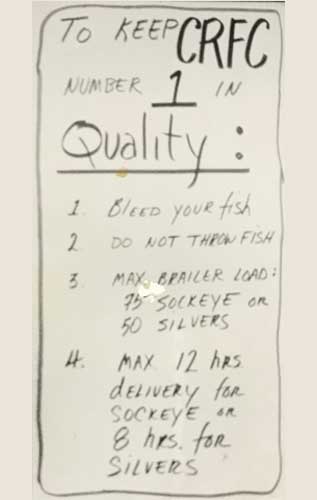 TO KEEP CRFC
NUMBER 1 IN
Quality :
1. BLEED YOUR fish
2. DO NOT THROW FISH
3. MAX. BRAILER LOAD:
75 SOCKEYE OR
50 SILVERS
4. MAX. 12 hrs.
dELIVERY for
SOCKEYE OR
8 hrs. for
SILVERS